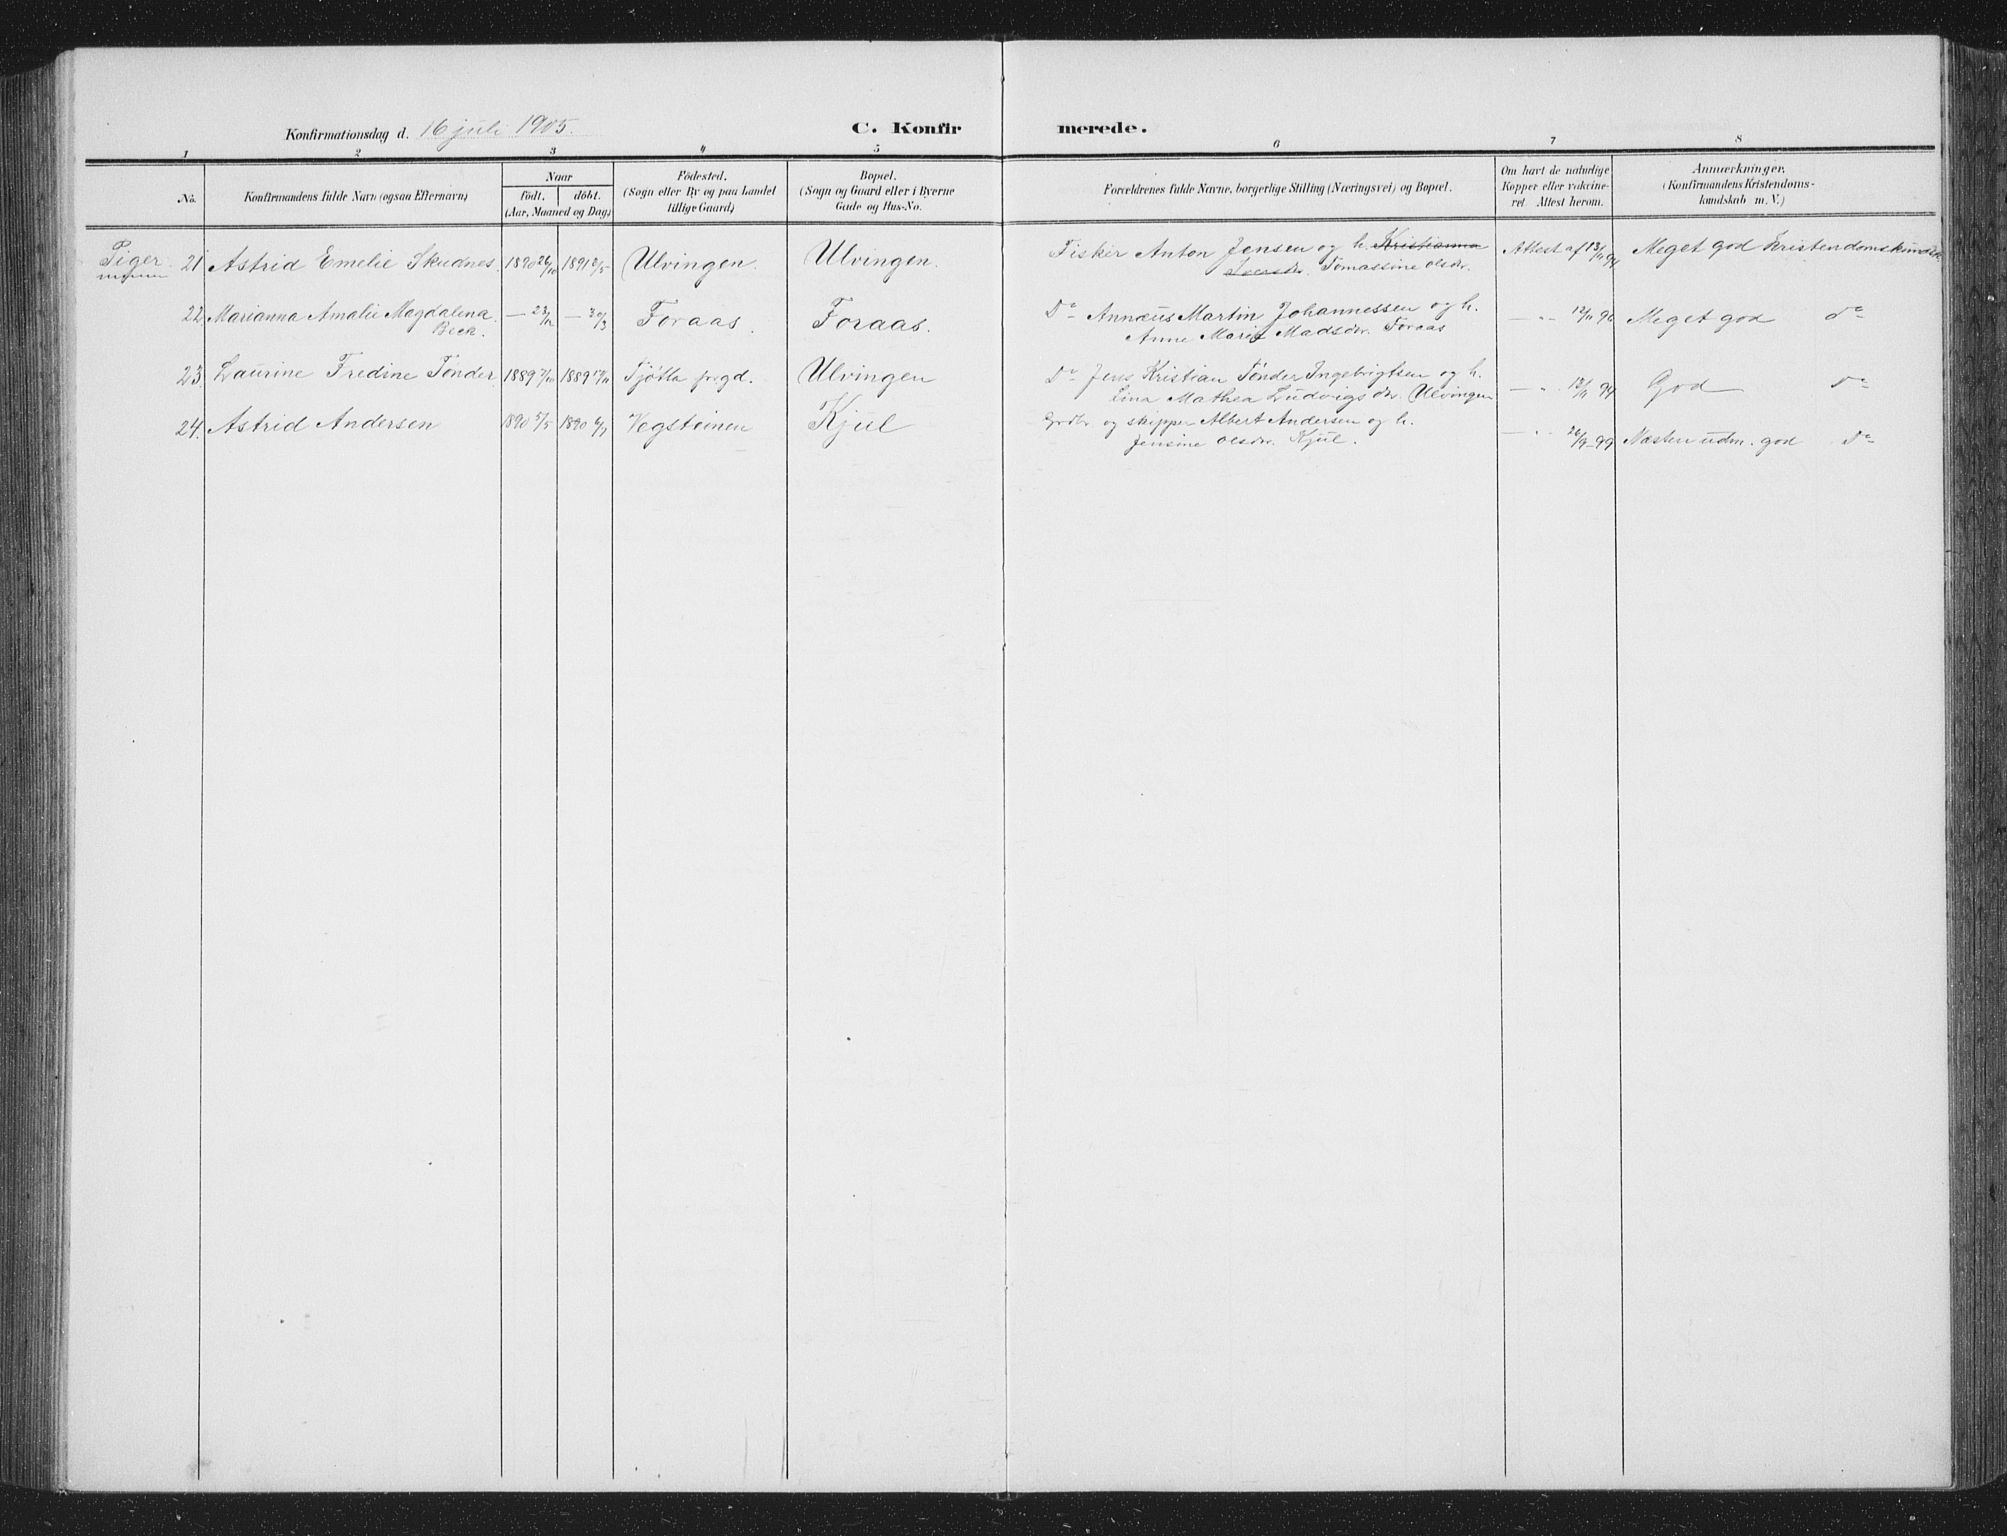 Konfirmationsdag d. 16 juli 1905. C. Konfirmerede.
1 2 3 4 5 6 7 8
No. Konfirmandens fulde Navn (ogsaa Efternavn) Naar født. døbt. (Aar, Maaned og Dag) Fødested. (Sogn eller By og paa Landet tillige Gaard) Bopæl. (Sogn og Gaard eller i Byerne Gade og Hus-No. Forældrenes fulde Navne, borgerlige Stilling (Næringsvei) og Bopæl. Om havt de naturlige Kopper eller vakcineret. Attest herom. Anmærkninger. (Konfirmandens Kristendomskundskab m. V.)
Piger
21 Astrid Emelie Skudnes 1890 26/10 1891 Ulvingen. Ulvingen. Fisker Anton Jensen og h. Kristianna Attest af 13/11 94 Meget god Kristendomskundsk.
Tomassine Olsdr.
22 Marianna Amalie Magdalena — 23/12 — 30/3 Foraas. Foraas. Do Annæus Martin Johannessen og h. — " — 12/11 96 Meget god Do
Beck. Anne Marie Madsdr. Foraas
23. Laurine Fredine Tønder 1889 1889 Tjøtta prgd. Ulvingen Do Jens Kristian Tønder Ingebrigtsen og h. — " — 13/11 94 God Do
Lina Mathea Ludvigsdr. Ulvingen
24. Astrid Andersen 1890 5/5 1890 6/7 Vegsteinen Kjul Grdbr. og skipper Albert Andersen og h. — " — 26/9 99 Næsten udm. god Do
Jensine Olsdr. Kjul.